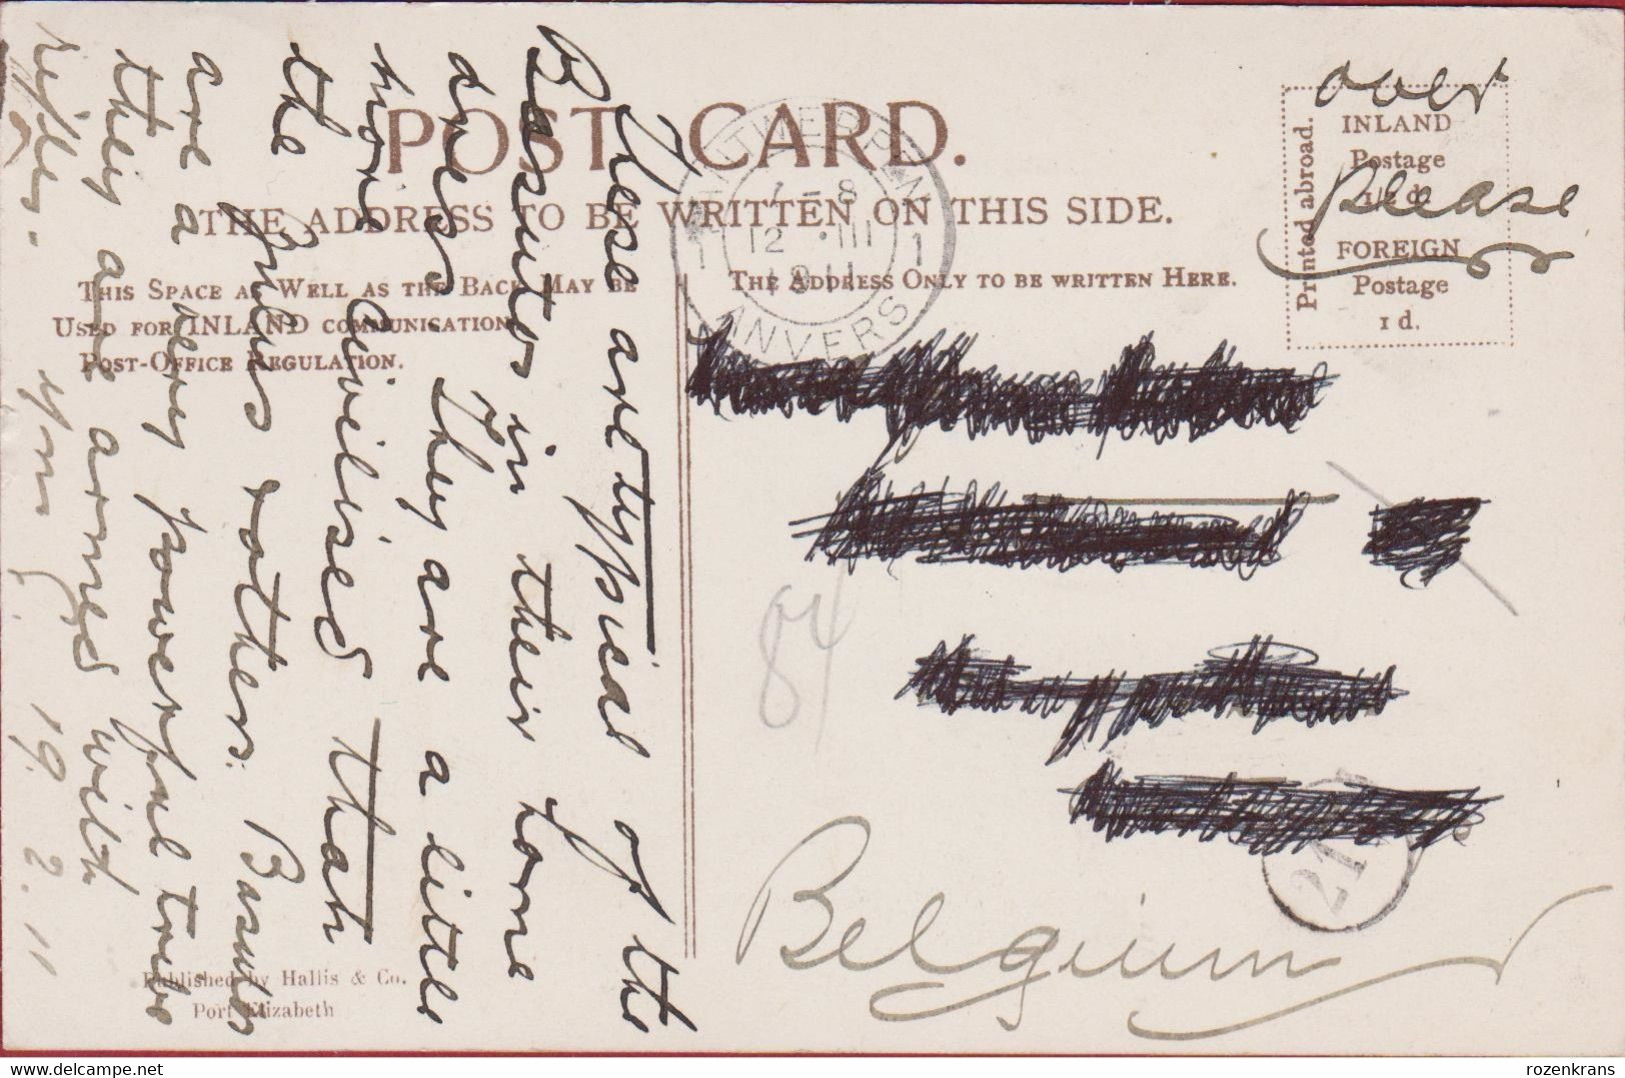 POST CARD.
THE ADDRESS TO BE WRITTEN ON THIS SIDE.
THIS SPACE AS WELL AS THE BACK MAY BE
USED FOR INLAND COMMUNICATION
POST-OFFICE REGULATION.
THE ADDRESS ONLY TO BE WRITTEN HERE.
Printed abroad.
INLAND
Postage
½ d.
FOREIGN
Postage
1 d.
over
please
ANTWERPEN
7-8
12 III
1911
1 1
ANVERS
These are typical of the
Basutos in their home
dress They are a little
more Civilised than
the Zulus & others. Basutos
are a very powerful tribe
they are armed with
rifles.
19. 2. 11
84
21
Belgium
Published by Hallis & Co.
Port Elizabeth
delcampe.net
rozenkrans